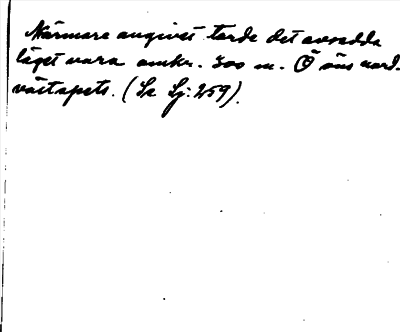 Närmare angivet torde det avsedda
läget vara omkr. 300 m. Ö öns nord-
västspets. (Se Lj: 259).